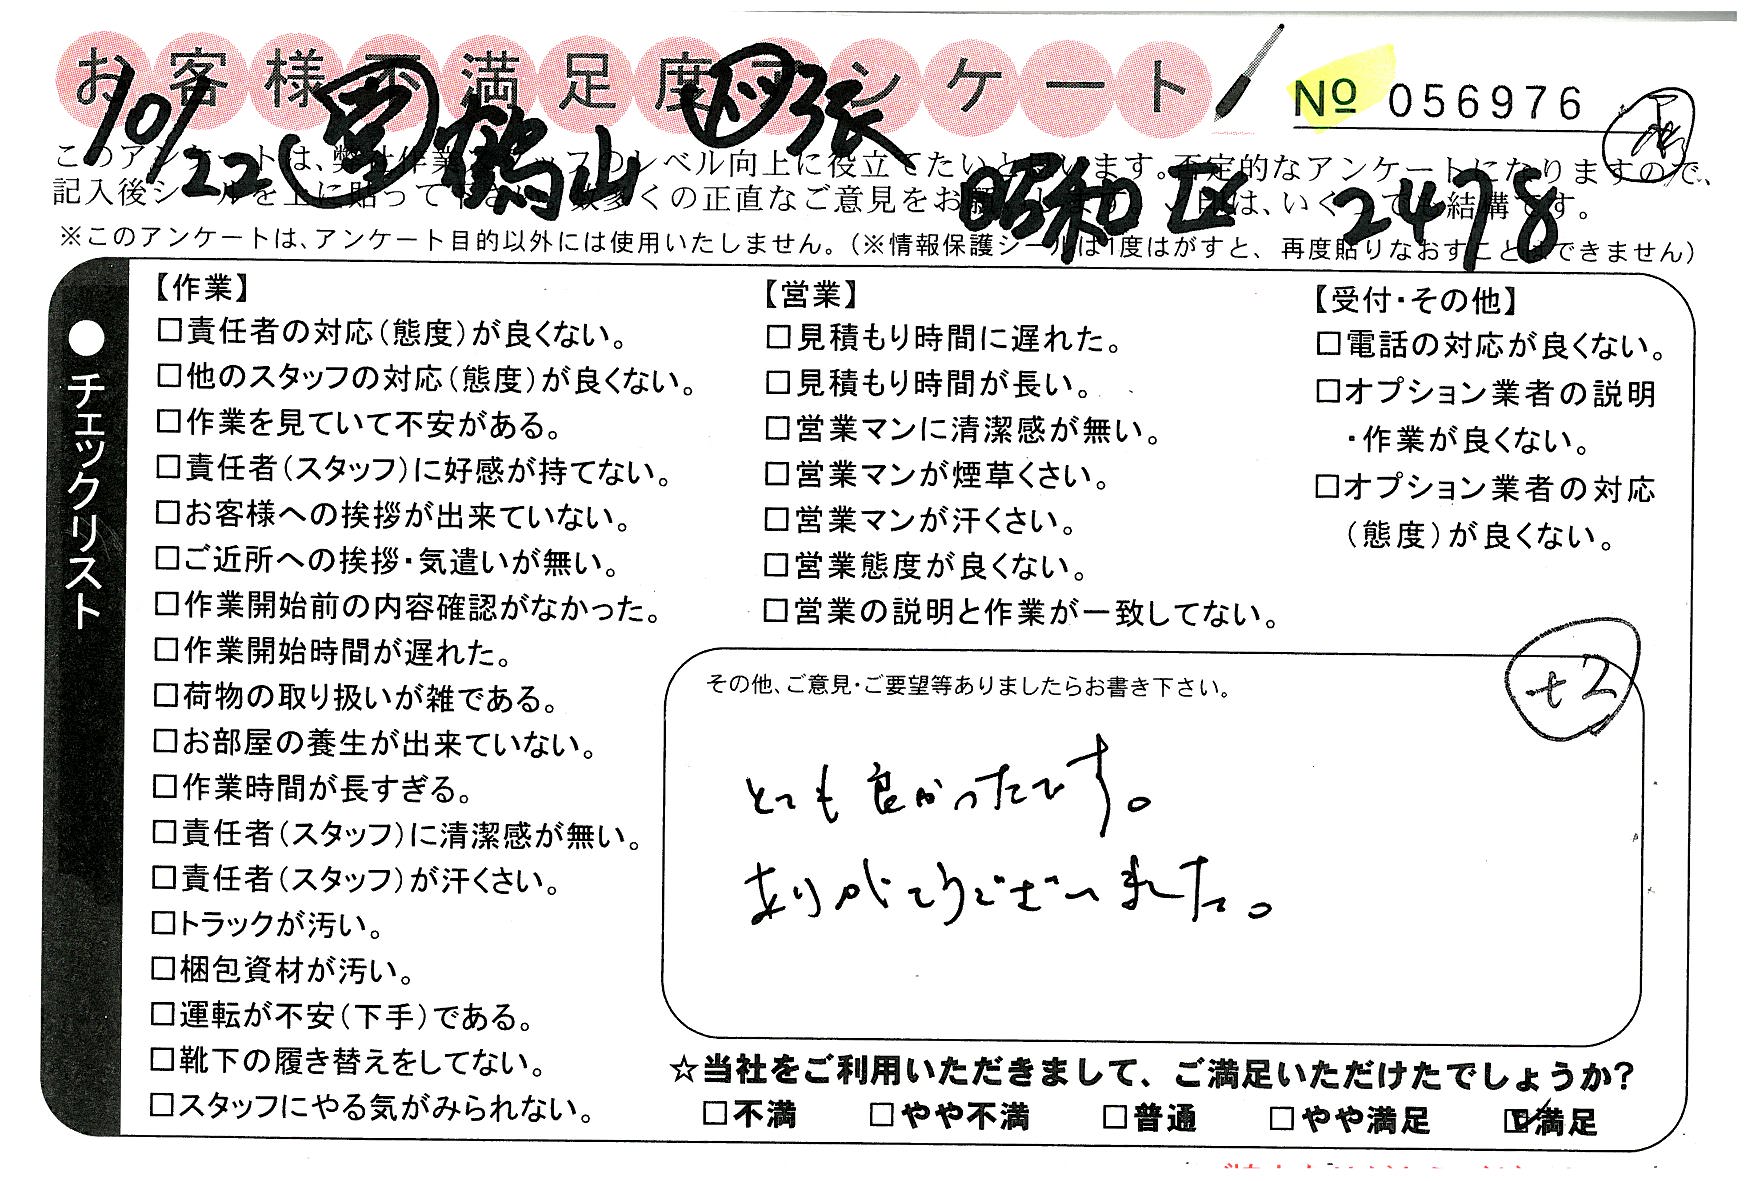 お客様不満足度アンケート
№ 056976
10/22 堂 鶴山 下 張
昭和区 2478
このアンケートは、弊社作業スタッフのレベル向上に役立てたいと思います。否定的なアンケートになりますので、
記入後シールを上に貼って下さい。数多くの正直なご意見をお願いします。ご署名は、いくつでも結構です。
※このアンケートは、アンケート目的以外には使用いたしません。(※情報保護シールは1度はがすと、再度貼りなおすことはできません)
●チェックリスト
【作業】
□責任者の対応(態度)が良くない。
□他のスタッフの対応(態度)が良くない。
□作業を見ていて不安がある。
□責任者(スタッフ)に好感が持てない。
□お客様への挨拶が出来ていない。
□ご近所への挨拶・気遣いが無い。
□作業開始前の内容確認がなかった。
□作業開始時間が遅れた。
□荷物の取り扱いが雑である。
□お部屋の養生が出来ていない。
□作業時間が長すぎる。
□責任者(スタッフ)に清潔感が無い。
□責任者(スタッフ)が汗くさい。
□トラックが汚い。
□梱包資材が汚い。
□運転が不安(下手)である。
□靴下の履き替えをしてない。
□スタッフにやる気がみられない。
【営業】
□見積もり時間に遅れた。
□見積もり時間が長い。
□営業マンに清潔感が無い。
□営業マンが煙草くさい。
□営業マンが汗くさい。
□営業態度が良くない。
□営業の説明と作業が一致してない。
【受付・その他】
□電話の対応が良くない。
□オプション業者の説明
・作業が良くない。
□オプション業者の対応
(態度)が良くない。
+2
その他、ご意見・ご要望等ありましたらお書き下さい。
とても良かったです。
ありがとうございました。
☆当社をご利用いただきまして、ご満足いただけたでしょうか?
□不満 □やや不満 □普通 □やや満足 ☑満足